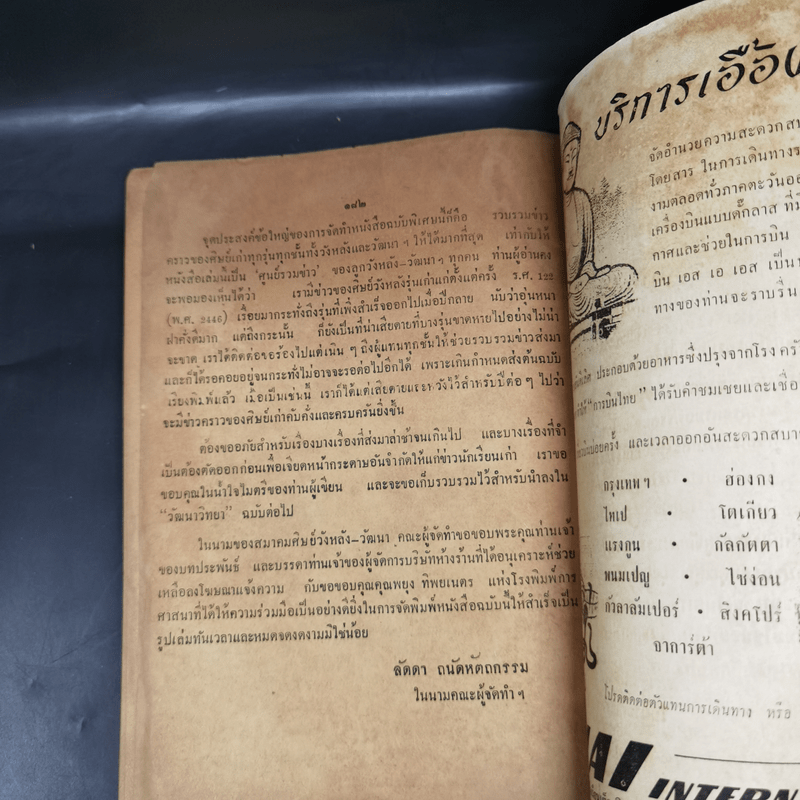 ๑๗๒
จุดประสงค์ข้อใหญ่ของการจัดทำหนังสือฉบับพิเศษนี้ก็คือ รวบรวมข่าว
คราวของศิษย์เก่าทุกรุ่นทุกชั้นทั้งวังหลังและวัฒนา ฯ ให้ได้มากที่สุด เท่ากับให้
หนังสือเล่มนี้เป็น 'ศูนย์รวมข่าว' ของลูกวังหลัง-วัฒนา ฯ ทุกคน ท่านผู้อ่านคง
จะพอมองเห็นได้ว่า เรามีข่าวของศิษย์วังหลังรุ่นเก่าแก่ตั้งแต่ครั้ง ร.ศ. 122
(พ.ศ. 2446) เรื่อยมากระทั่งถึงรุ่นที่เพิ่งสำเร็จออกไปเมื่อปีกลาย นับว่าอุ่นหนา
ฝาคั่งดีมาก แต่ถึงกระนั้น ก็ยังเป็นที่น่าเสียดายที่บางรุ่นขาดหายไปอย่างไม่น่า
จะขาด เราได้ติดต่อขอร้องไปแต่เนิ่น ๆ ถึงผู้แทนทุกชั้นให้ช่วยรวบรวมข่าวส่งมา
และก็ได้รอคอยอยู่จนกระทั่งไม่อาจจะรอต่อไปอีกได้ เพราะเกินกำหนดส่งต้นฉบับ
เรียงพิมพ์แล้ว เมื่อเป็นเช่นนี้ เราก็ได้แต่เสียดายและหวังไว้สำหรับปีต่อ ๆ ไปว่า
จะมีข่าวคราวของศิษย์เก่าคับคั่งและครบครันยิ่งขึ้น
ต้องขออภัยสำหรับเรื่องบางเรื่องที่ส่งมาล่าช้าจนเกินไป และบางเรื่องที่จำ
เป็นต้องตัดออกก่อนเพื่อเจียดหน้ากระดาษอันจำกัดให้แก่ข่าวนักเรียนเก่า เราขอ
ขอบคุณในน้ำใจไมตรีของท่านผู้เขียน และจะขอเก็บรวบรวมไว้สำหรับนำลงใน
“วัฒนาวิทยา” ฉบับต่อไป
ในนามของสมาคมศิษย์วังหลัง-วัฒนา คณะผู้จัดทำขอขอบพระคุณท่านเจ้า
ของบทประพันธ์ และบรรดาท่านเจ้าของผู้จัดการบริษัทห้างร้านที่ได้อนุเคราะห์ช่วย
เหลือลงโฆษณาแจ้งความ กับขอขอบคุณคุณพยง ทิพยเนตร แห่งโรงพิมพ์การ
ศาสนาที่ได้ให้ความร่วมมือเป็นอย่างดียิ่งในการจัดพิมพ์หนังสือฉบับนี้ให้สำเร็จเป็น
รูปเล่มทันเวลาและหมดจดงดงามมิใช่น้อย
ลัดดา ถนัดหัตถกรรม
ในนามคณะผู้จัดทำ ฯ
บริการเอื้อง
จัดอำนวยความสะดวก
โดยสาร ในการเดินทาง
งามตลอดทั่วภาคตะวันออ
เครื่องบินแบบดักลาส ที่
กาศและช่วยในการบิน
บิน เอส เอ เอส เป็น
ทางของท่านจะราบรื่น
ประกอบด้วยอาหารซึ่งปรุงจากโรง
“การบินไทย” ได้รับคำชมเชยและเชื่อ
บ่อยครั้ง และเวลาออกอันสะดวกสบาย
กรุงเทพฯ • ฮ่องกง
ไทเป • โตเกียว
แรงกูน • กัลกัตตา
พนมเปญ • ไซ่ง่อน
กัวลาลัมเปอร์ • สิงคโปร์
จาการ์ต้า
โปรดติดต่อตัวแทนการเดินทาง หรือ
AI INTERN